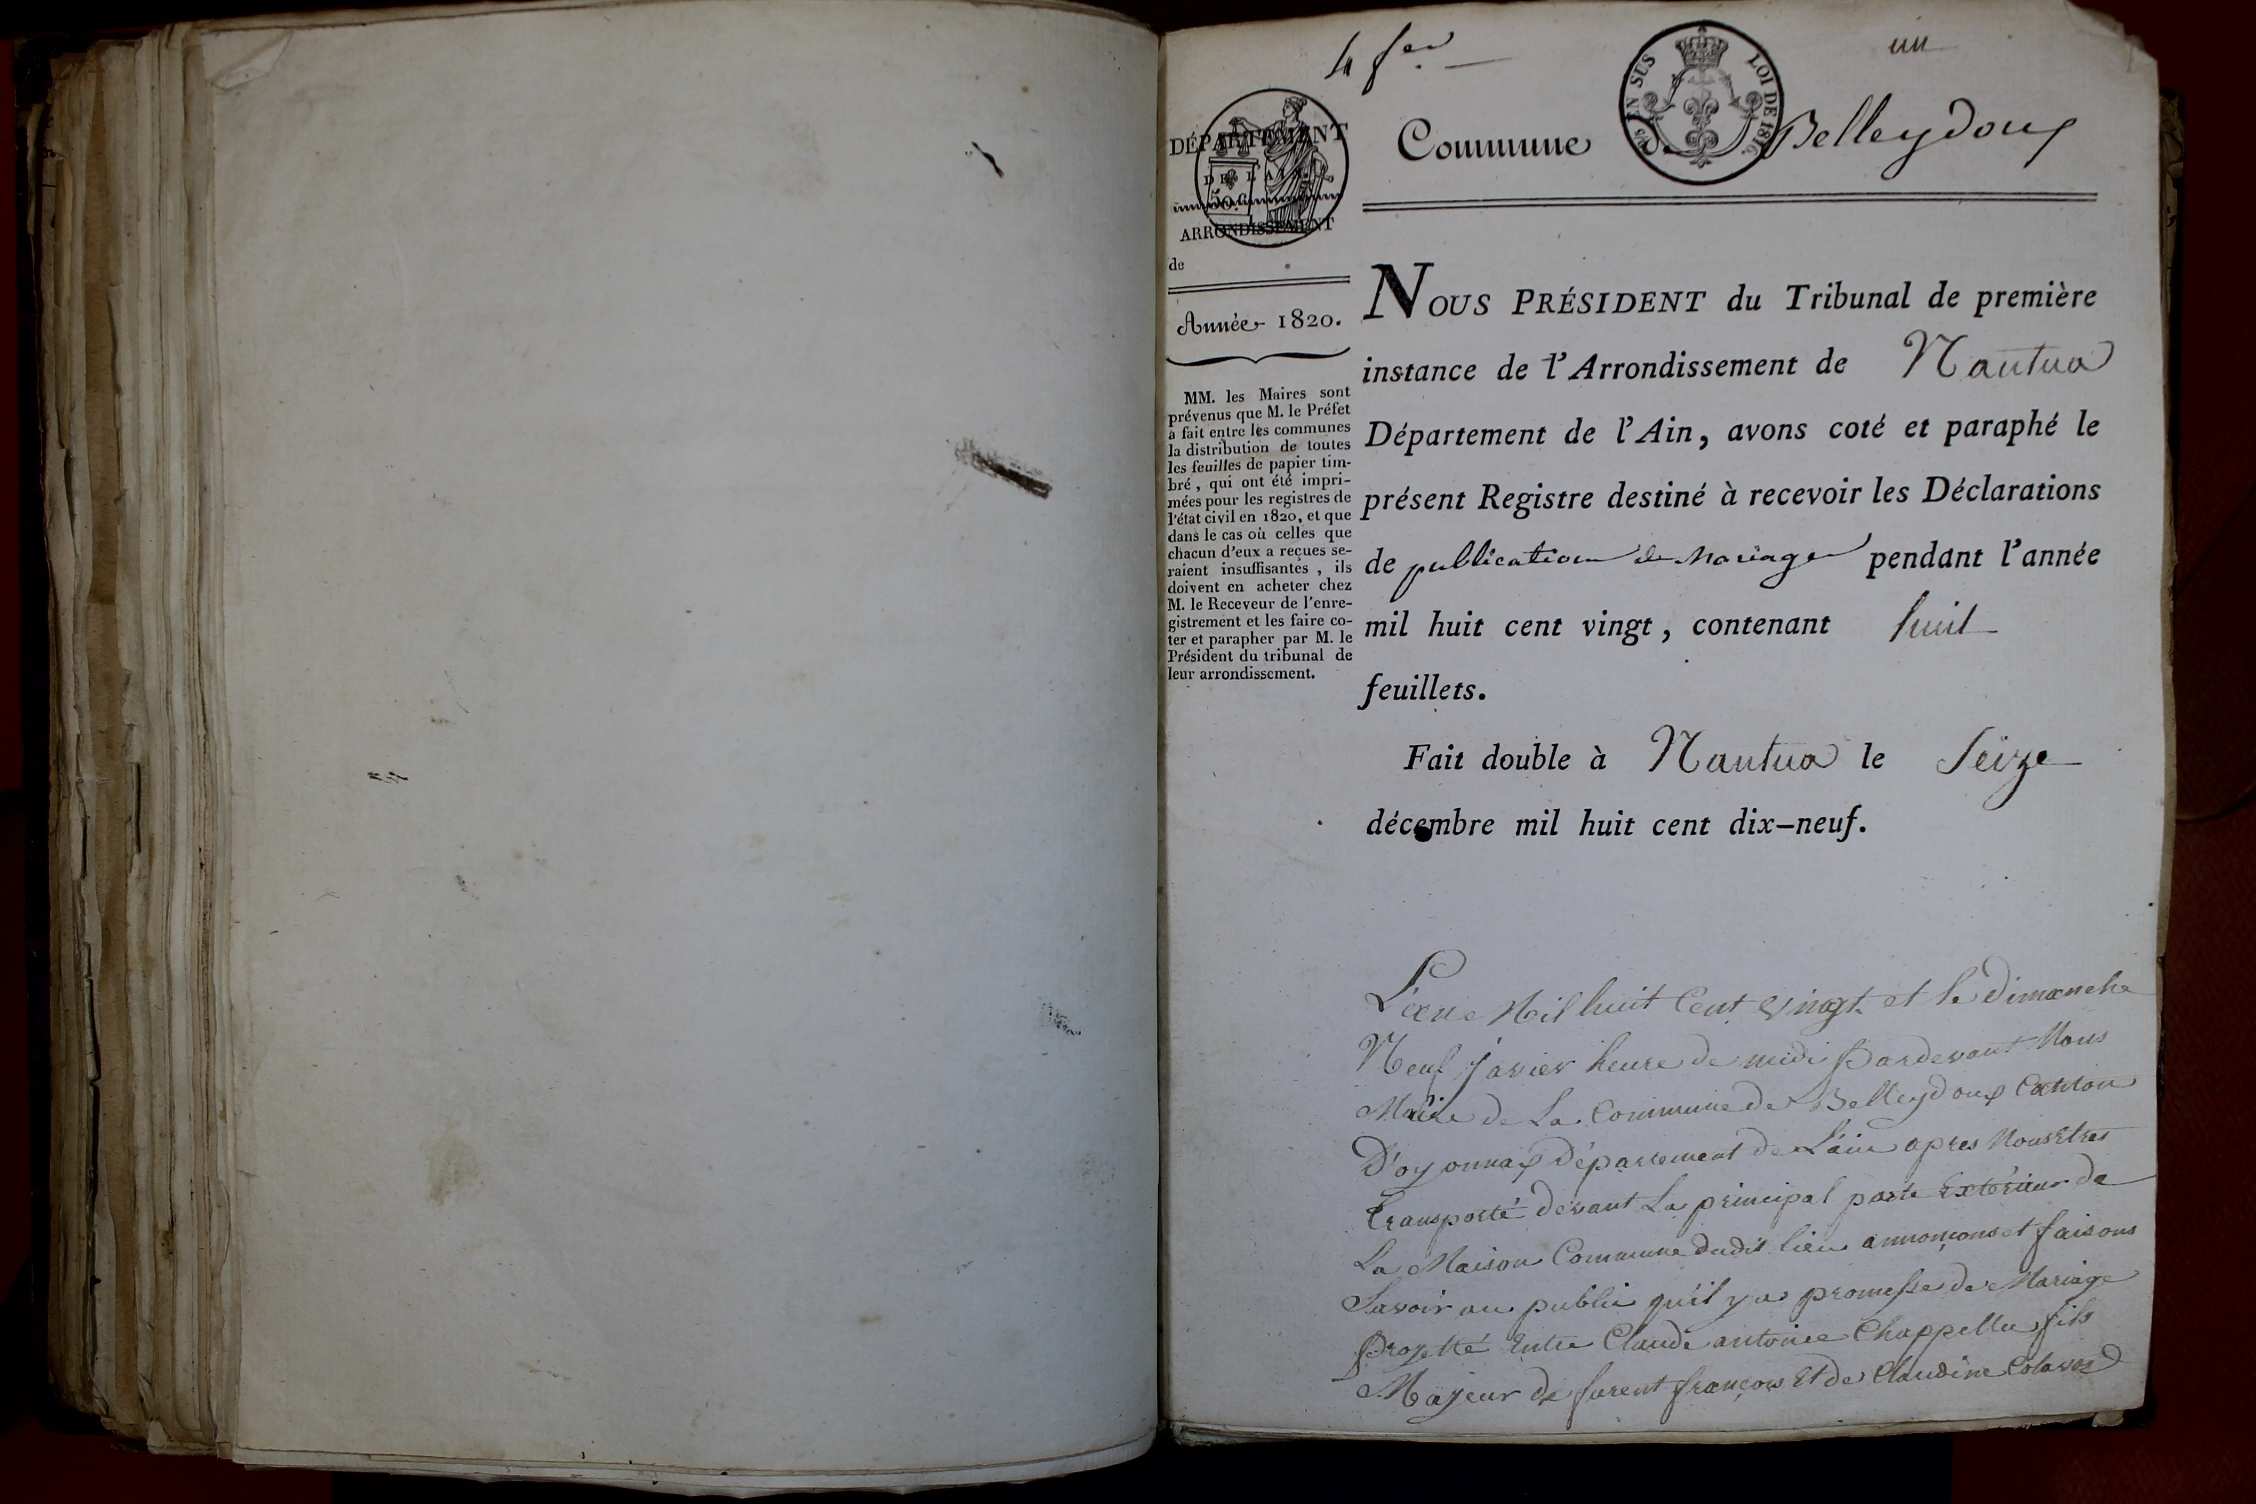 4 fer
un
EN SUS
LOI DE 1816.
DÉPARTEMENT
DE L'AIN
50 c
ARRONDISSEMENT
de
Année 1820.
MM. les Maires sont
prévenus que M. le Préfet
a fait entre les communes
la distribution de toutes
les feuilles de papier tim-
bré, qui ont été impri-
mées pour les registres de
l'état civil en 1820, et que
dans le cas où celles que
chacun d'eux a reçues se-
raient insuffisantes, ils
doivent en acheter chez
M. le Receveur de l'enre-
gistrement et les faire co-
ter et parapher par M. le
Président du tribunal de
leur arrondissement.
Commune de Belleydoux
NOUS PRÉSIDENT du Tribunal de première
instance de l'Arrondissement de Nantua
Département de l'Ain, avons coté et paraphé le
présent Registre destiné à recevoir les Déclarations
de publication de Mariage pendant l'année
mil huit cent vingt, contenant huit
feuillets.
Fait double à Nantua le Seize
décembre mil huit cent dix-neuf.
L'an Mil huit Cent Vingt et le dimanche
Neuf javier heure de midi Pardevant Nous
Maire de La Commune de Belleydoux Canton
D'oyonnax Département de L'ain apres Nous Etres
Transporté devant La principal porte Extérieur de
La Maison Commune dudit lieu annonçons et faisons
Savoir au public qu'il y a promesse de Mariage
Projetté Entre Claude antoine Chappellu fils
Majeur de furent françois Et de Claudine Colavoz